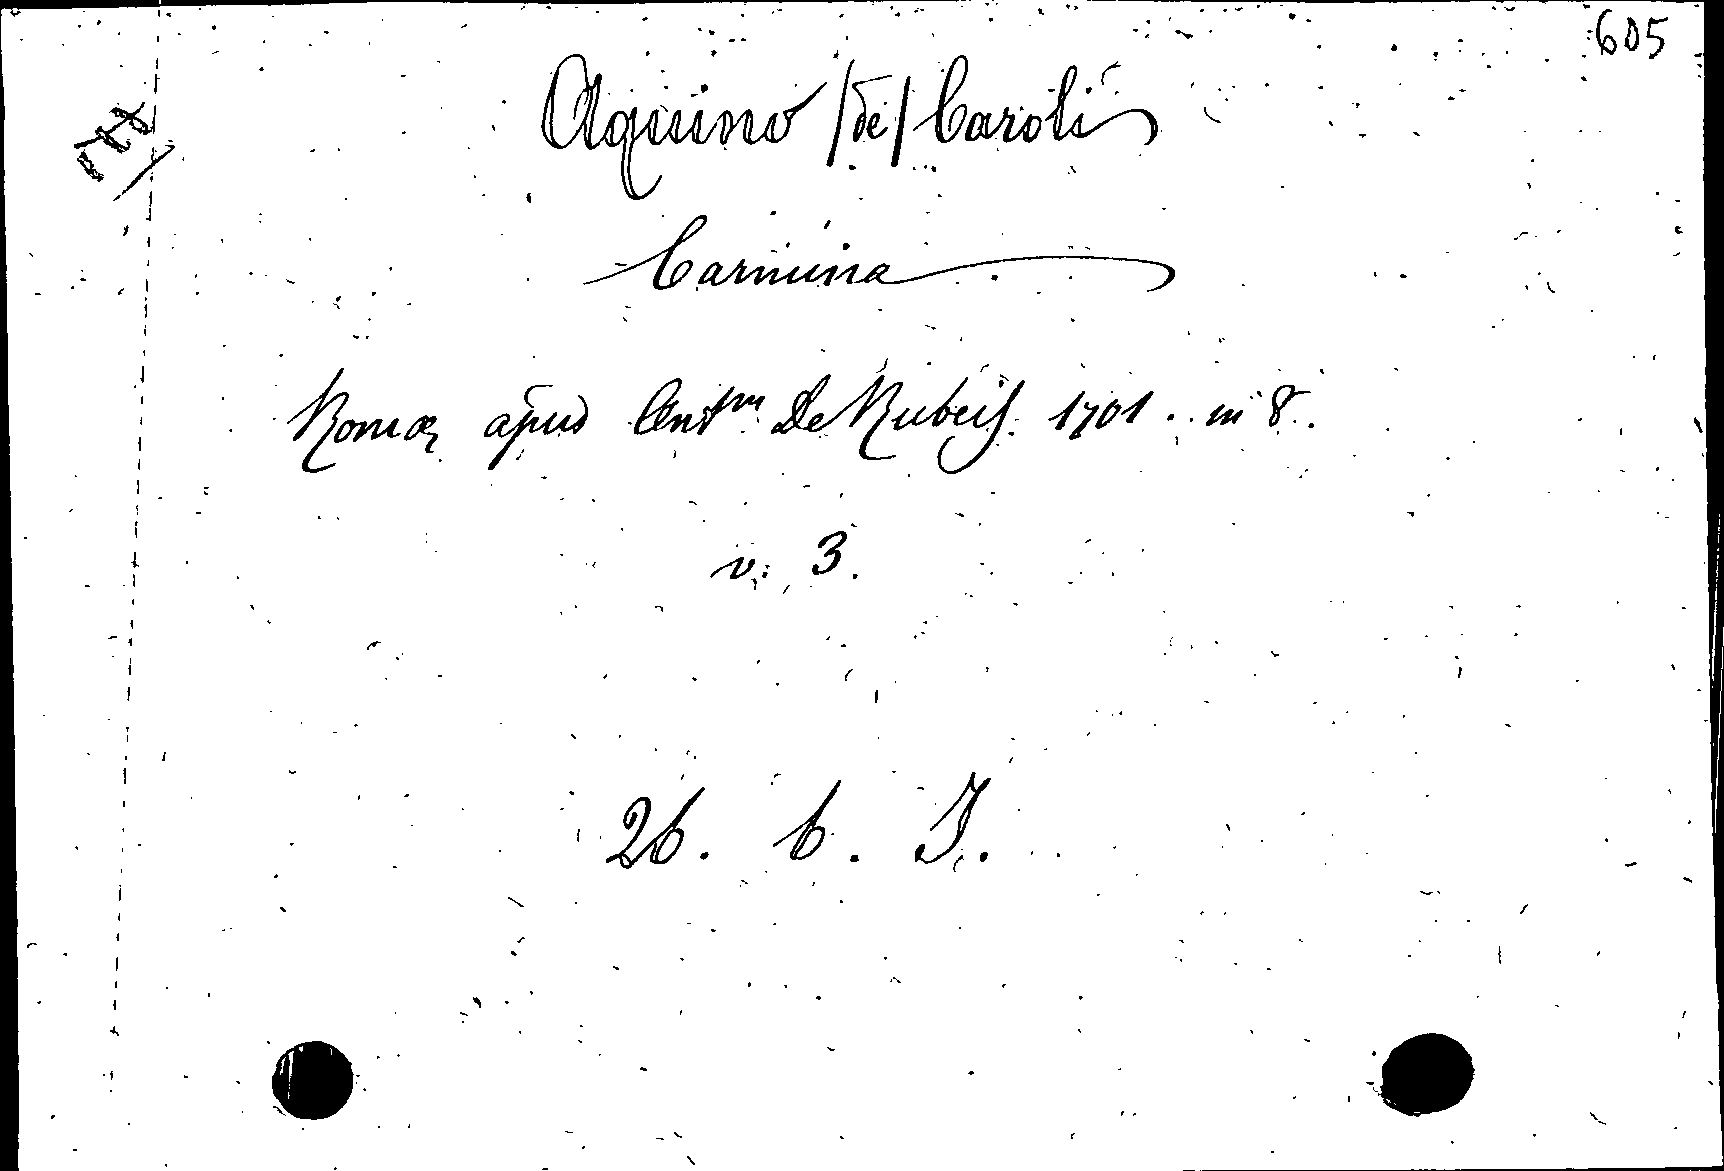 605
Aquino /de/ Caroli
Carmina
Romæ apud Antm De Rubeis. 1701. in 8.
v. 3.
26. b. I.